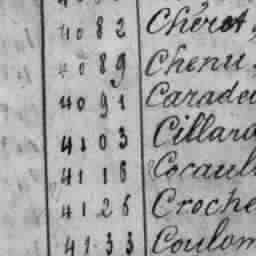 4082 Chérot,
4089 Chenu
4091 Caradeu
4103 Cillard
4116 Cocaul
4126 Croche
4133 Coulom